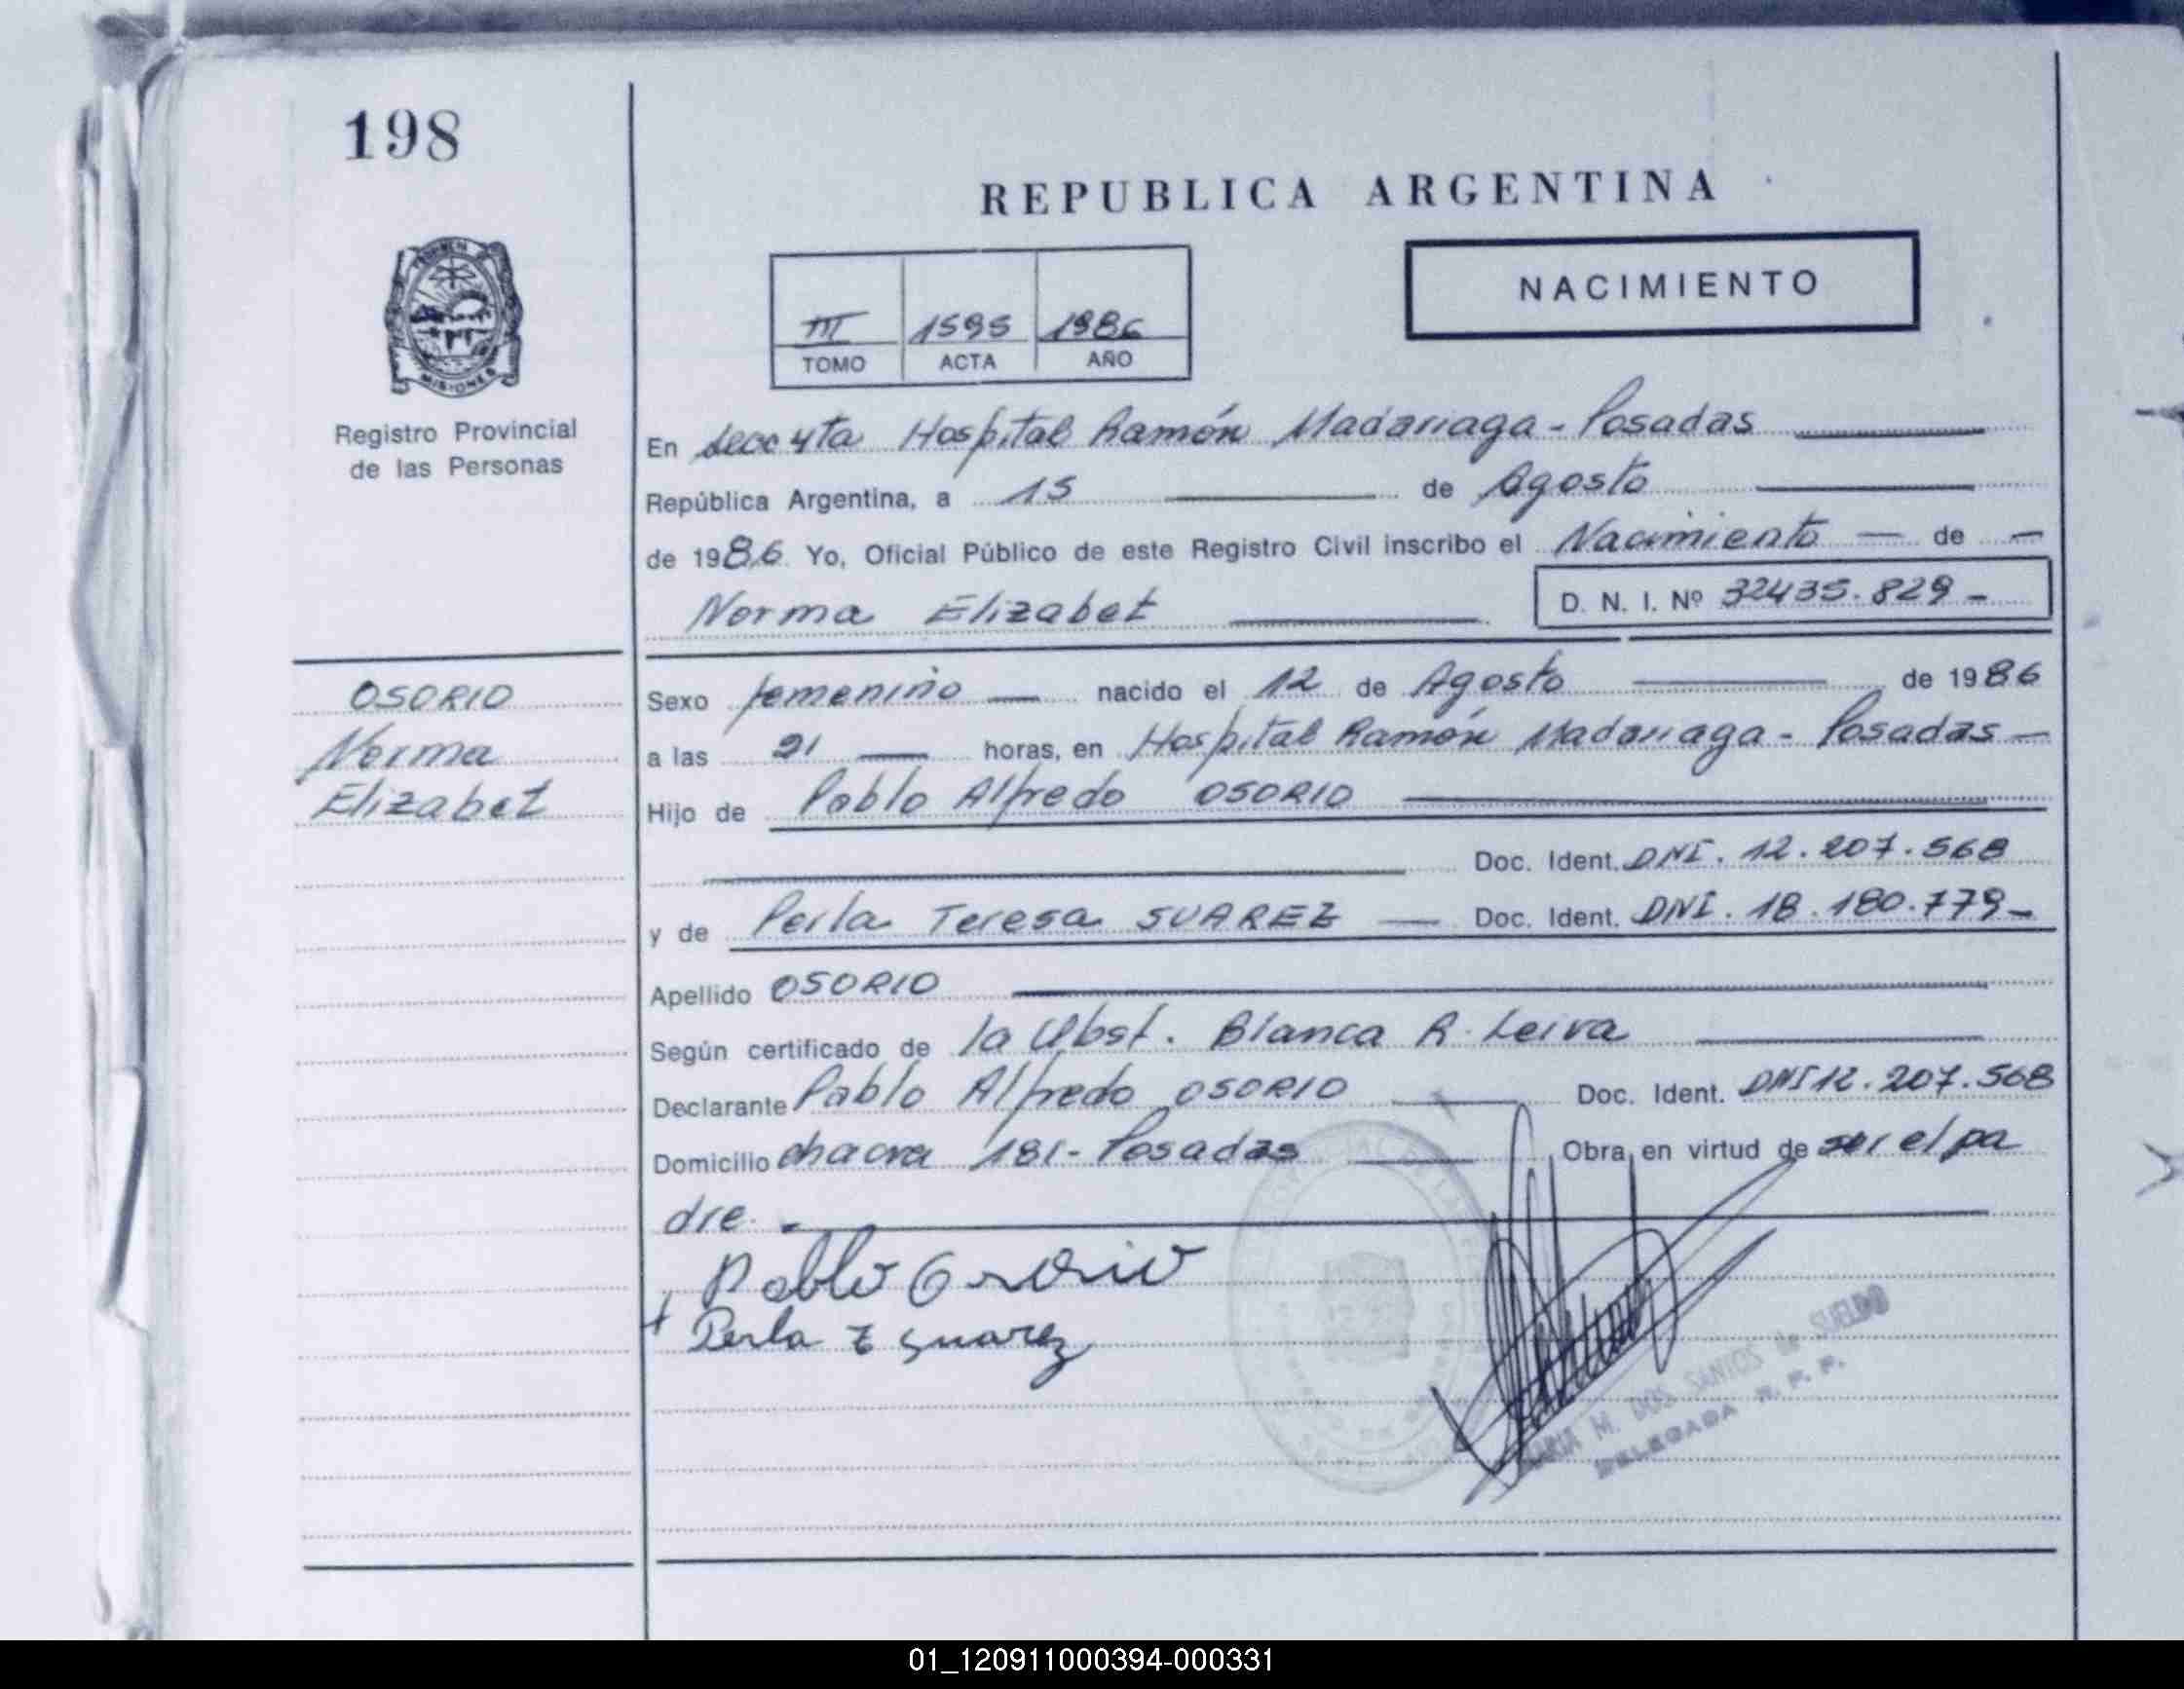 198
REPUBLICA ARGENTINA
NACIMIENTO
III 1595 1986
TOMO ACTA AÑO
PROVINCIA
MISIONES
Registro Provincial
de las Personas
En Secc 4ta Hospital Ramón Madariaga - Posadas
República Argentina, a 15 de Agosto
de 1986. Yo, Oficial Público de este Registro Civil inscribo el Nacimiento — de —
Norma Elizabet D. N. I. Nº 32435.829 -
OSORIO
Norma
Elizabet
Sexo femenino — nacido el 12 de Agosto de 1986
a las 21 — horas, en Hospital Ramón Madariaga - Posadas —
Hijo de Pablo Alfredo OSORIO
Doc. Ident. DNI. 12.207.568
y de Perla Teresa SUAREZ — Doc. Ident. DNI. 18.180.779-
Apellido OSORIO
Según certificado de la Obst. Blanca R. Leiva
Declarante Pablo Alfredo OSORIO Doc. Ident. DNI 12.207.568
Domicilio chacra 181- Posadas Obra en virtud de ser el pa
dre. -
Pablo Osorio
+ Perla T Suarez
MARIA M. DOS SANTOS de SUELDO
DELEGADA R. P. P.
01_120911000394-000331